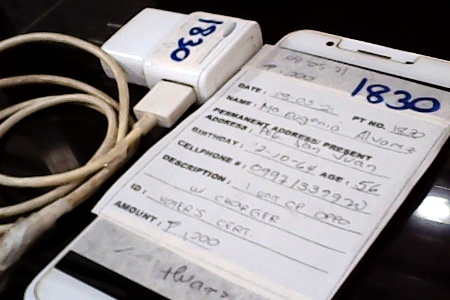 1830
09-05-21
1830
DATE: 09-05-21 PT NO. 1830
NAME: Ma Eugenia Alvarez
PERMANENT ADDRESS/PRESENT
ADDRESS: San Juan
BIRTHDAY: 12-10-64 AGE: 56
CELLPHONE #: 09971337920
DESCRIPTION: 1 UNIT CP OPPO
W/ CHARGER
ID: VOTER'S CERT.
AMOUNT: ₱ 1,200